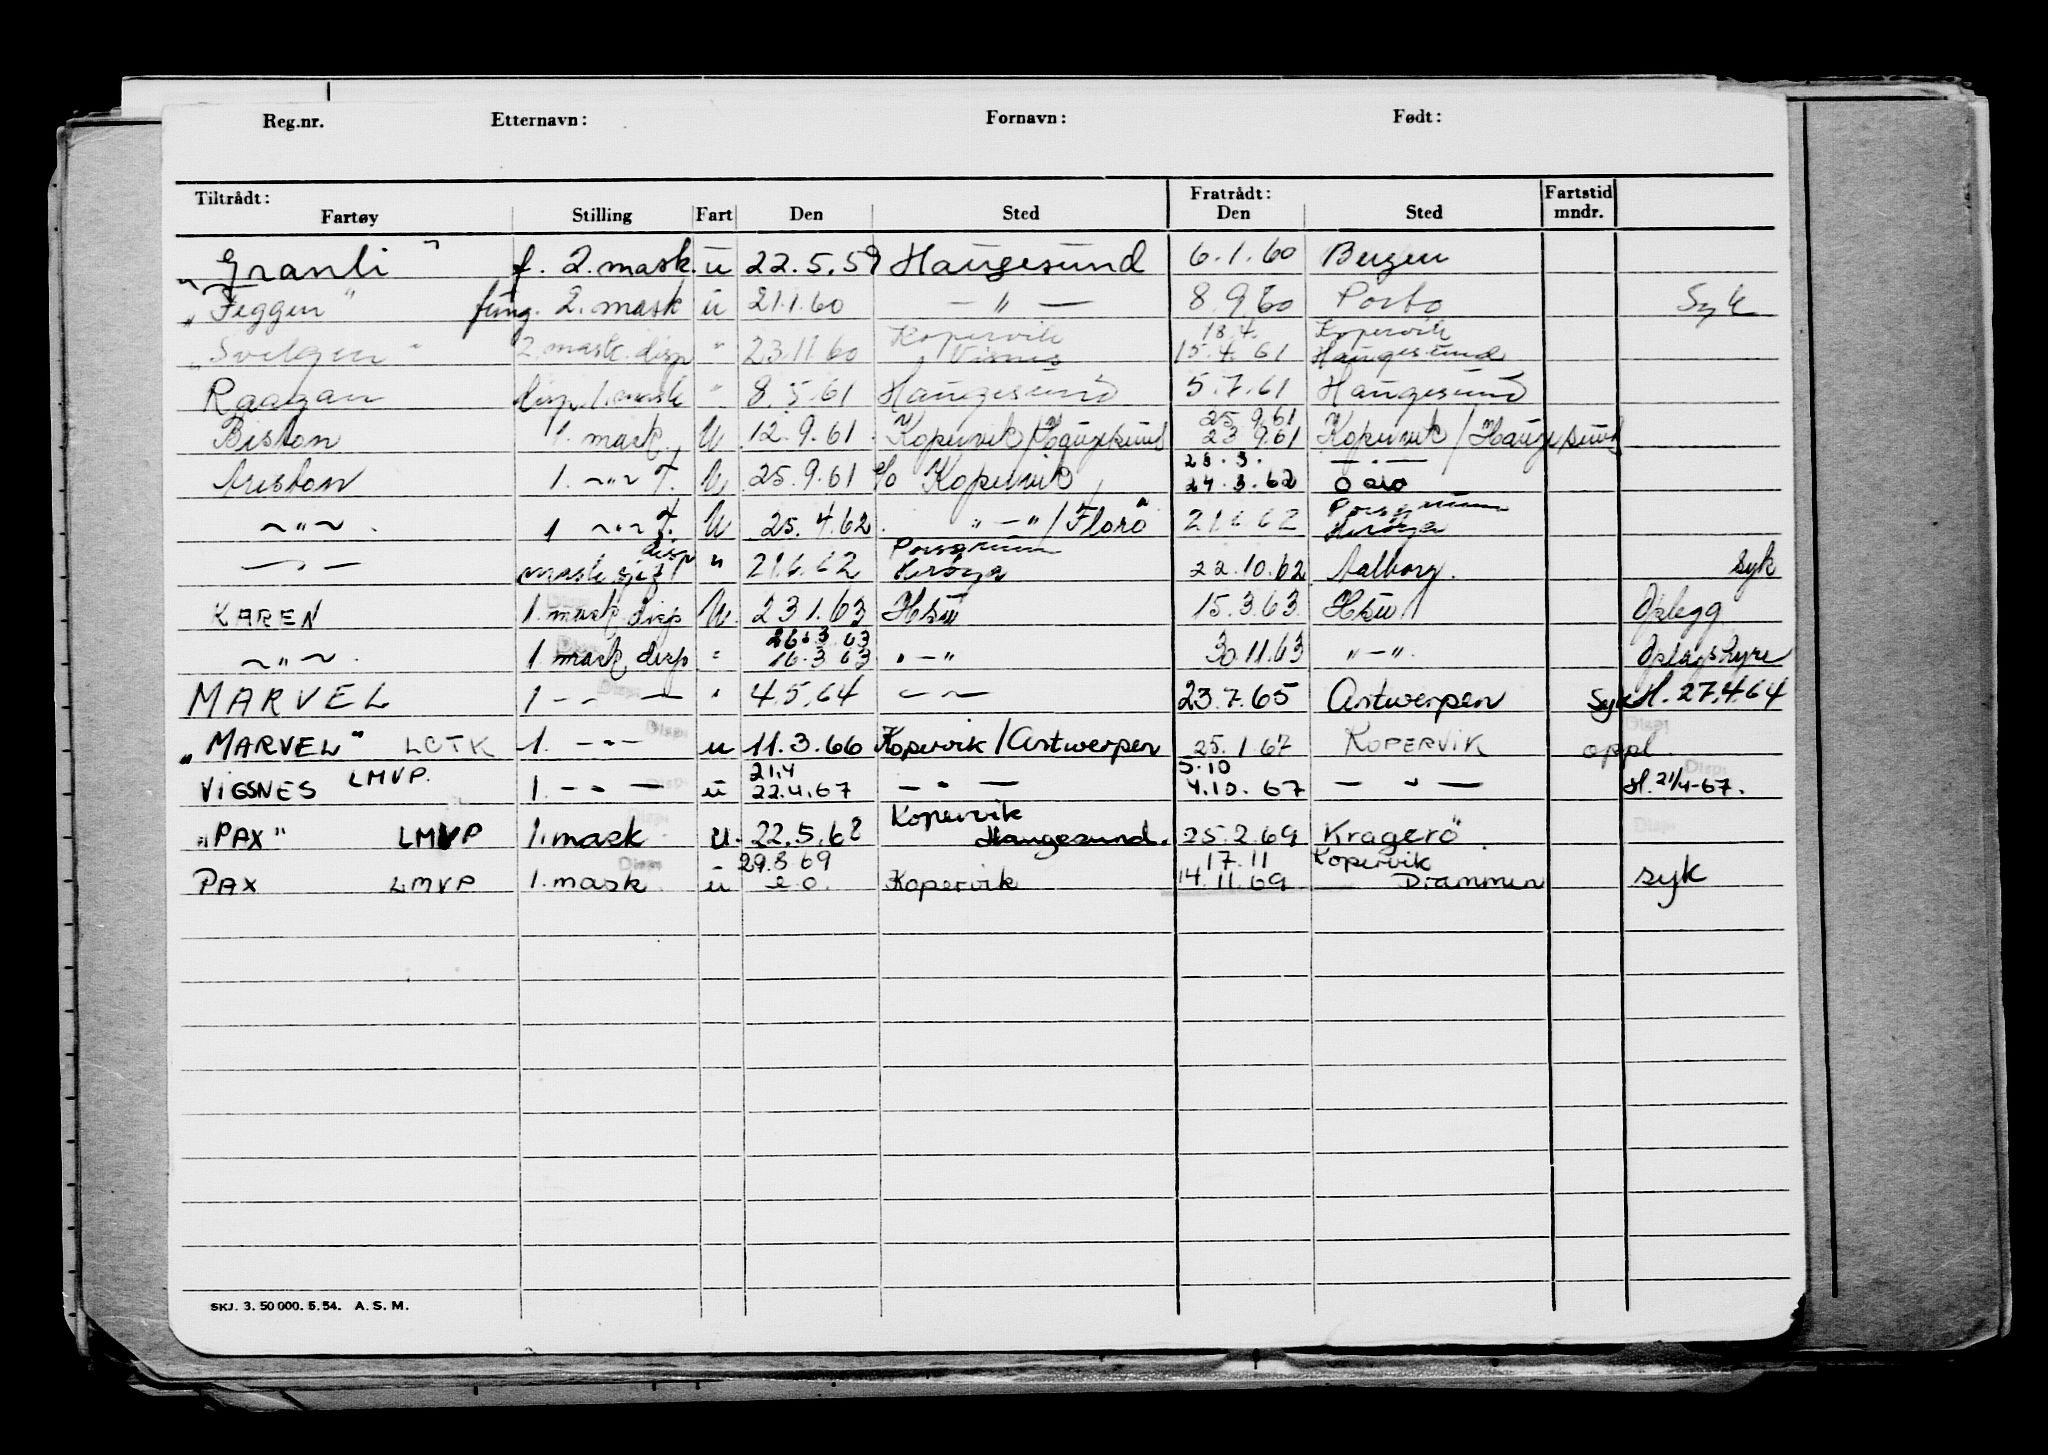 Reg.nr. Etternavn: Fornavn: Født:
Tiltrådt: Fratrådt: Fartstid
Fartøy Stilling Fart Den Sted Den Sted mndr.
"Granli" f. 2. mask. u 22.5.59 Haugesund 6.1.60 Bergen
"Feggen" fung. 2. mask u 21.1.60 — " — 8.9.60 Porto Syk
Kopervik 18.4. Kopervik
"Svelgen" 2. mask. disp " 23.11.60 Visnes 15.4.61 Haugesund
Raagan disp. 1. mask " 8.5.61 Haugesund 5.7.61 Haugesund
25.9.61
Biston 1. mask. U 12.9.61. Kopervik/Haugesund 23 9.61 Kopervik/Haugesund
— . —
Ariston 1. ~"~ f. U 25.9.61 Kopervik 24.3.62 Oslo
Porsgrunn
~"~. 1 ~"~ f. U 25.4.62 " — "/Florø 21.6.62 Herøya
disp Porsgrunn
— " — maskisjef " 21.6.62 Herøya 22.10.62 Aalborg. syk
KAREN 1. mask disp U. 23 1.63 Hsu 15.3.63. Hsu Oplegg
26.3.63
~"~. 1 mask disp " 16.3 63 " — " 30.11.63 " — ". Oplagshyre
MARVEL 1 - - — " 4.5.64 — ~ 23.7.65 Antwerpen Syk H. 27.4.64
"MARVEL" LCTK 1. - " - u 11.3.66 Kopervik/Antwerpen 25.1.67 KOPERVIK oppl.
21.4 5.10
VIGSNES LMVP. 1. - " — u 22.4.67 — " — 4.10.67 — " — H. 21/4-67.
Kopervik
"PAX" LMVP 1. mask u. 22.5.68 Haugesund. 25.2.69 Kragerö.
29.8 69 17.11 Kopervik
PAX LMVP 1. mask. u e o. Kopervik 14.11.69 Drammen syk
SKJ. 3. 50 000. 5. 54. A. S. M.